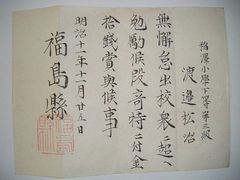 稲澤小學下等第三級
渡邉松治
無懈怠出校衆ニ超ヘ
勉勵候段竒特ニ付金
拾錢賞與候事
明治十一年十一月廿五日
福島縣